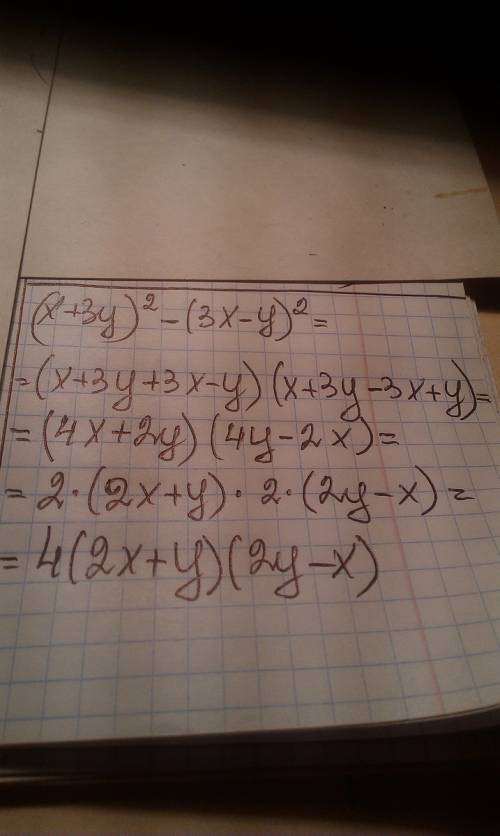 (x+3y)²-(3x-y)²=
=(x+3y+3x-y)(x+3y-3x+y)=
=(4x+2y)(4y-2x)=
=2·(2x+y)·2·(2y-x)=
=4(2x+y)(2y-x)